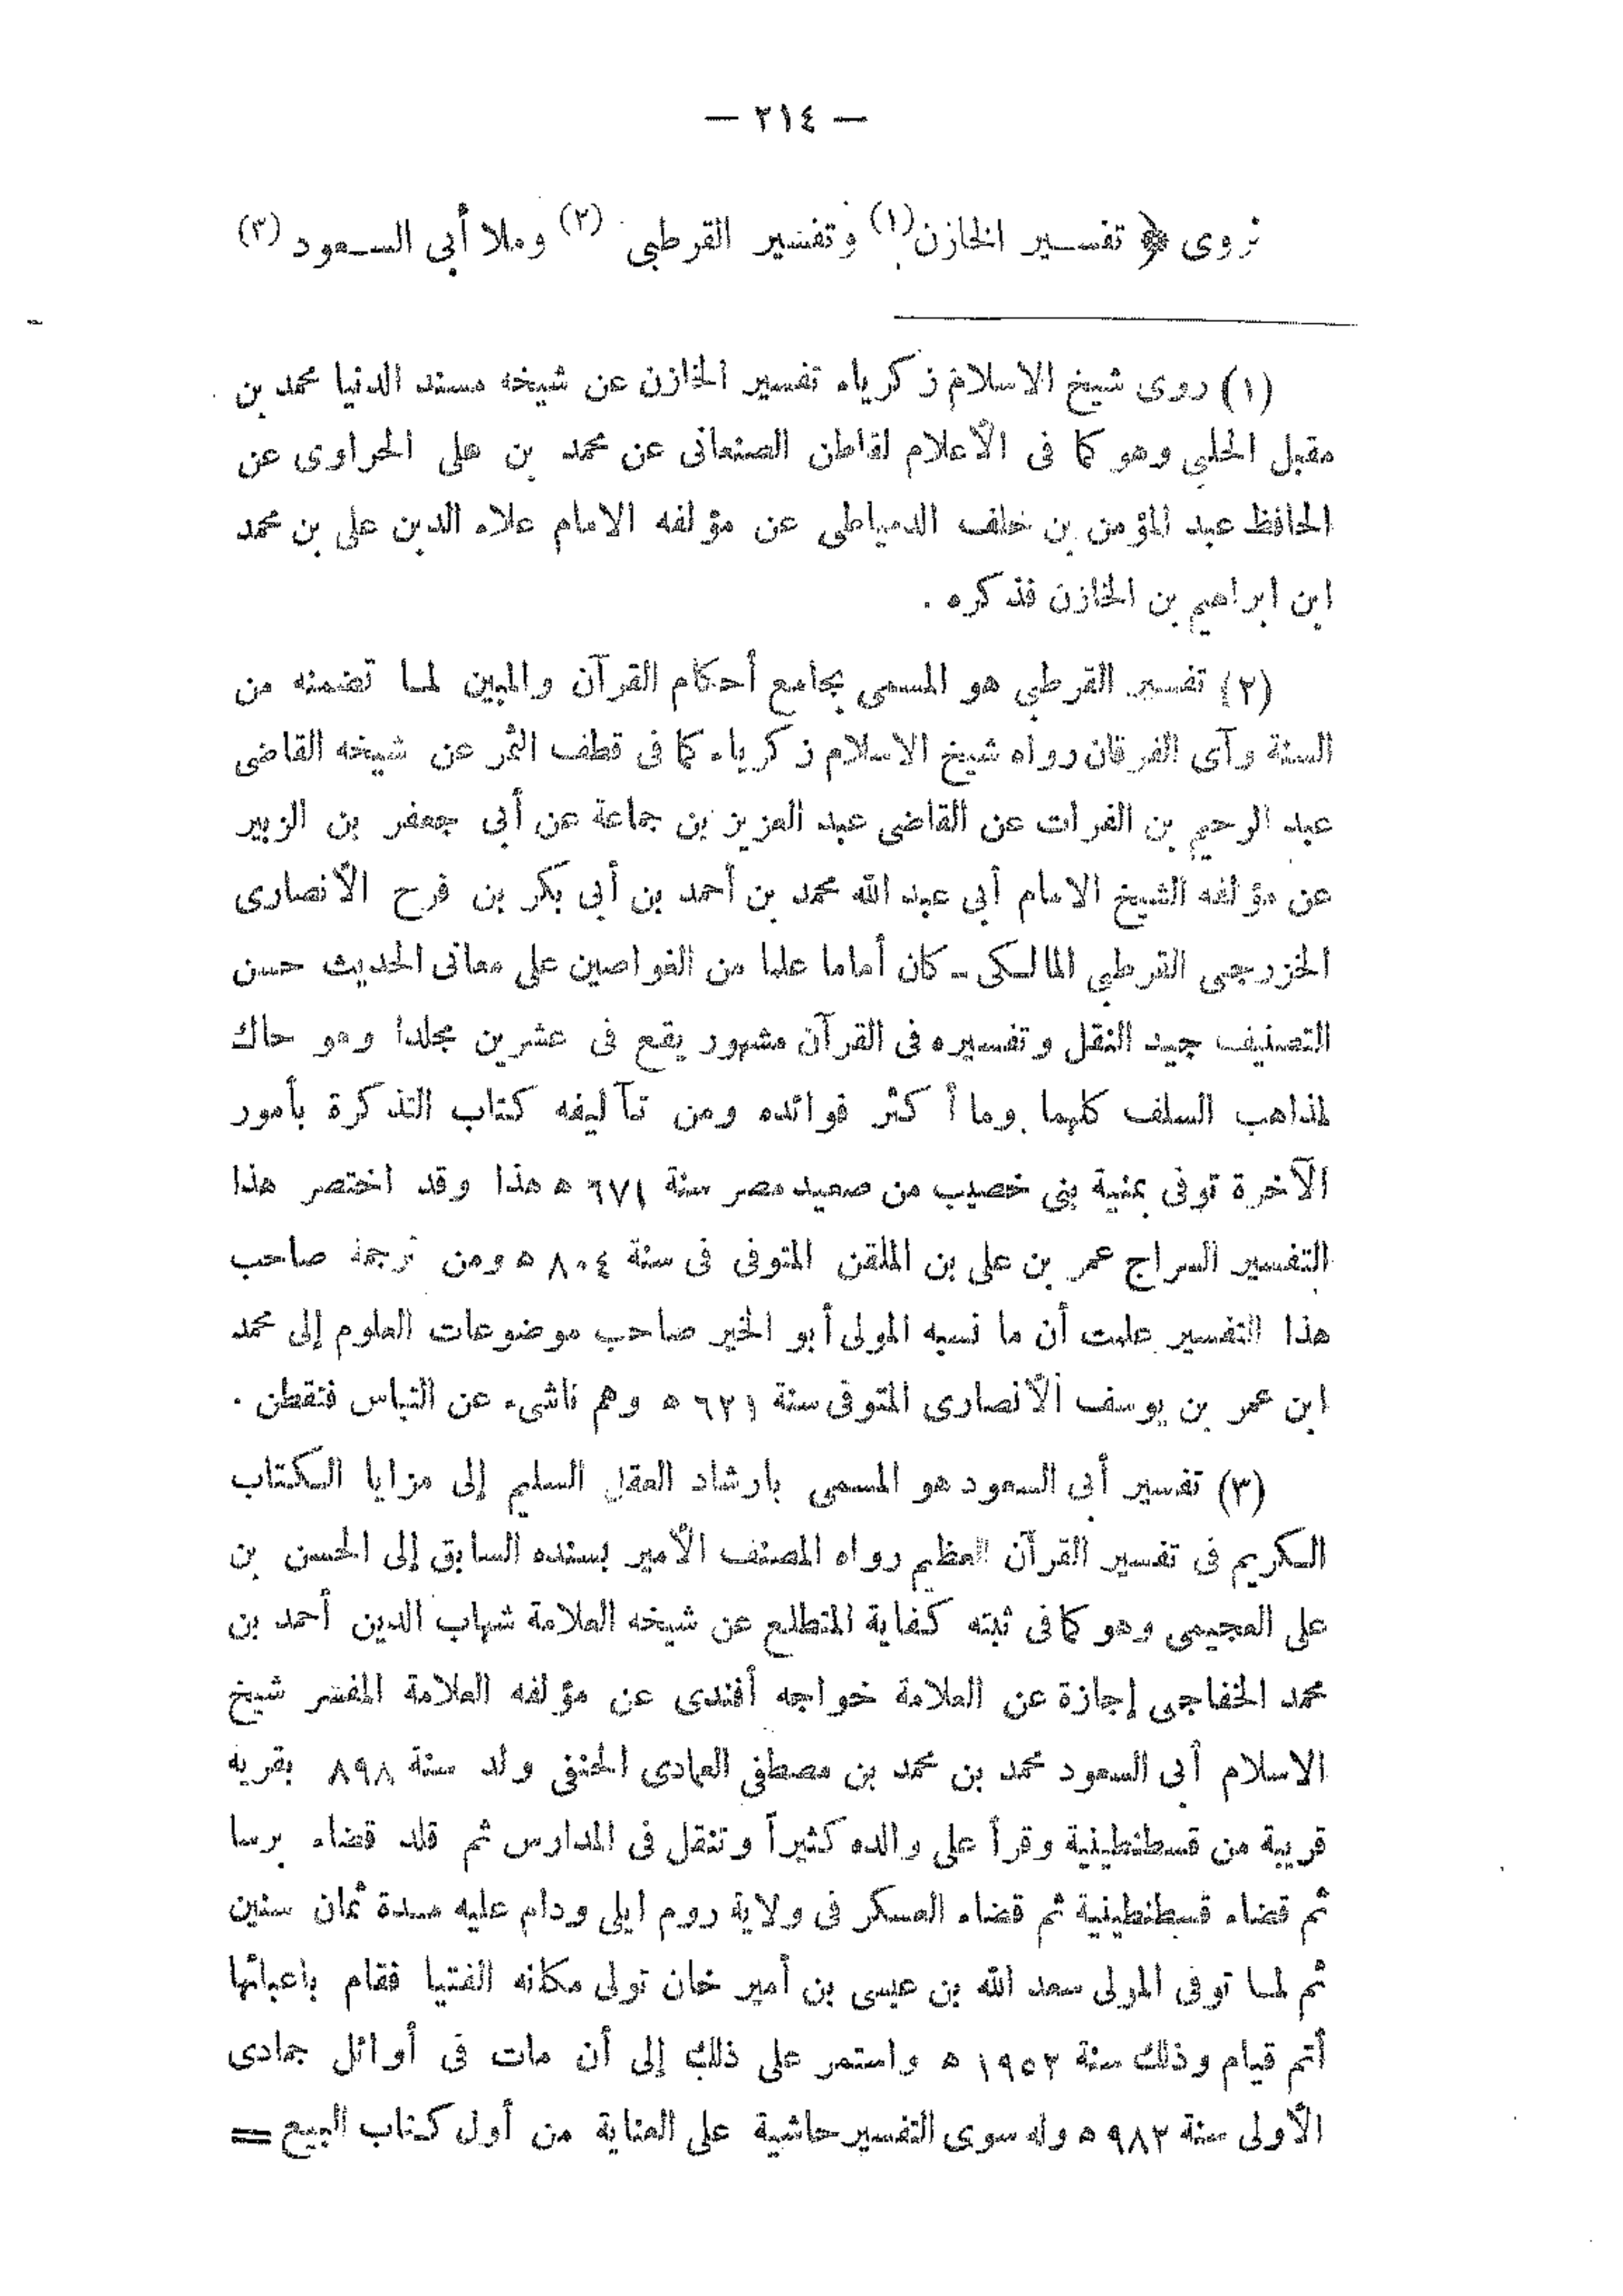 — ٢١٤ —
نروى ﴿ تفسير الخازن (١) وتفسير القرطبي (٢) وملا أبى السعود (٣)
(١) روى شيخ الاسلام زكرياء تفسير الخازن عن شيخه مسند الدنيا محمد بن
مقبل الحلبي وهو كما فى الأعلام لقاطن الصنعانى عن محمد بن على الحراوى عن
الحافظ عبد المؤمن بن خلف الدمياطى عن مؤلفه الامام علاء الدين على بن محمد
ابن ابراهيم بن الخازن فذكره .
(٢) تفسير القرطبي هو المسمى بجامع أحكام القرآن والمبين لما تضمنه من
السنة وآى الفرقان رواه شيخ الاسلام زكرياء كما فى قطف الثمر عن شيخه القاضى
عبد الرحيم بن الفرات عن القاضى عبد العزيز بن جماعة عن أبى جعفر بن الزبير
عن مؤلفه الشيخ الامام أبى عبد الله محمد بن أحمد بن أبى بكر بن فرح الأنصارى
الخزرجى القرطبي المالكى - كان أماما علما من الغواصين على معانى الحديث حسن
التصنيف جيد النقل وتفسيره فى القرآن مشهور يقع فى عشرين مجلدا وهو حاك
لمذاهب السلف كلهما وما أكثر فوائده ومن تآليفه كتاب التذكرة بأمور
الآخرة توفى بمنية بنى خصيب من صعيد مصر سنة ٦٧١ ه هذا وقد اختصر هذا
التفسير السراج عمر بن على بن الملقن المتوفى فى سنة ٨٠٤ ه ومن ترجمة صاحب
هذا التفسير علمت أن ما نسبه المولى أبو الخير صاحب موضوعات العلوم إلى محمد
ابن عمر بن يوسف الأنصارى المتوفى سنة ٦٢١ ه وهم ناشىء عن التباس فتقطن .
(٣) تفسير أبى السعود هو المسمى بارشاد العقل السليم إلى مزايا الكتاب
الكريم فى تفسير القرآن العظيم رواه المصنف الأمير بسنده السابق إلى الحسن بن
على العجيمى وهو كما فى ثبته كفاية المتطلع عن شيخه العلامة شهاب الدين أحمد بن
محمد الخفاجى إجازة عن العلامة خواجه أفندى عن مؤلفه العلامة المفسر شيخ
الاسلام أبى السعود محمد بن محمد بن مصطفى العمادى الحنفى ولد سنة ٨٩٨ بقريه
قريبة من قسطنطينية وقرأ على والده كثيراً وتنقل فى المدارس ثم قلد قضاء برسا
ثم قضاء قسطنطينية ثم قضاء العسكر فى ولاية روم ايلى ودام عليه مدة ثمان سنين
ثم لما توفى المولى سعد الله بن عيسى بن أمير خان تولى مكانه الفتيا فقام باعبائها
أتم قيام وذلك سنة ١٩٥٢ ه واستمر على ذلك إلى أن مات فى أوائل جمادى
الأولى سنة ٩٨٢ ه وله سوى التفسير حاشية على العناية من أول كتاب البيع =